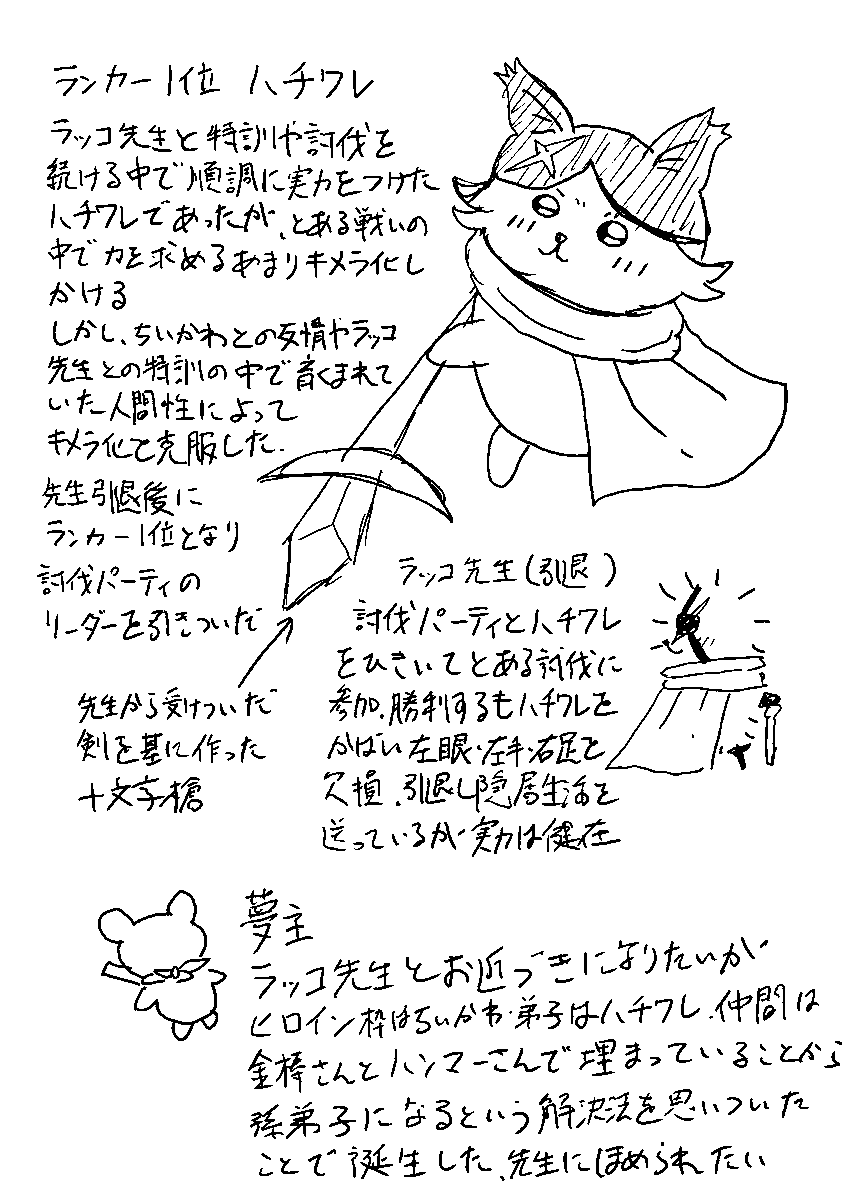 ランカー1位 ハチワレ
ラッコ先生と特訓や討伐を
続ける中で順調に実力をつけた
ハチワレであったが、とある戦いの
中で力を求めるあまりキメラ化し
かける
しかし、ちいかわとの友情やラッコ
先生との特訓の中で育くまれて
いた人間性によって
キメラ化を克服した.
先生引退後に
ランカー1位となり
討伐パーティの
リーダーを引きついだ
先生から受けついだ
剣を基に作った
十文字槍
ラッコ先生(引退)
討伐パーティとハチワレ
をひきいてとある討伐に
参加、勝利するもハチワレを
かばい左眼・左手・右足を
欠損、引退し隠居生活を
送っているが実力は健在
夢主
ラッコ先生とお近づきになりたいが
ヒロイン枠はちいかわ・弟子はハチワレ、仲間は
金棒さんとハンマーさんで埋まっていることから
孫弟子になるという解決法を思いついた
ことで誕生した、先生にほめられたい